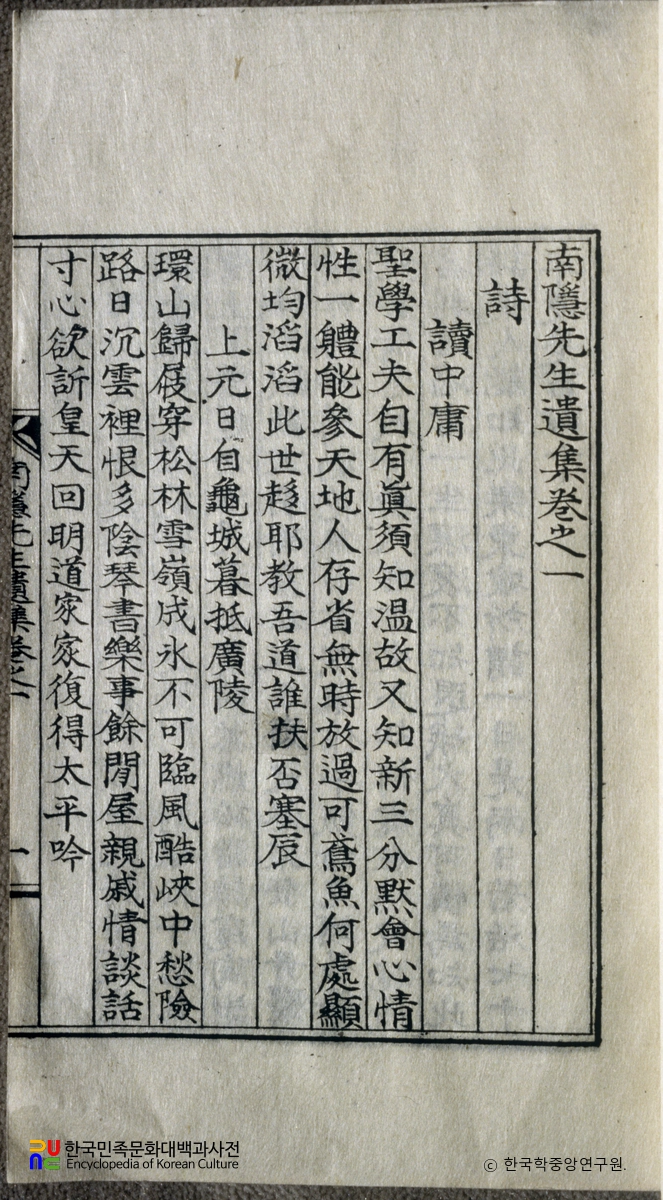 南隱先生遺集卷之一
詩
讀中庸
聖學工夫自有眞須知溫故又知新三分默會心情
性一軆能參天地人存省無時放過可鳶魚何處顯
微均滔滔此世趍耶教吾道誰扶否塞辰
上元日自龜城暮抵廣陵
環山歸屐穿松林雪嶺成氷不可臨風酷峽中愁險
路日沉雲裡恨多陰琴書樂事餘閒屋親戚情談話
寸心欲訴皇天回明道家家復得太平吟
南隱先生遺集卷之一
一
한국민족문화대백과사전
Encyclopedia of Korean Culture
© 한국학중앙연구원.